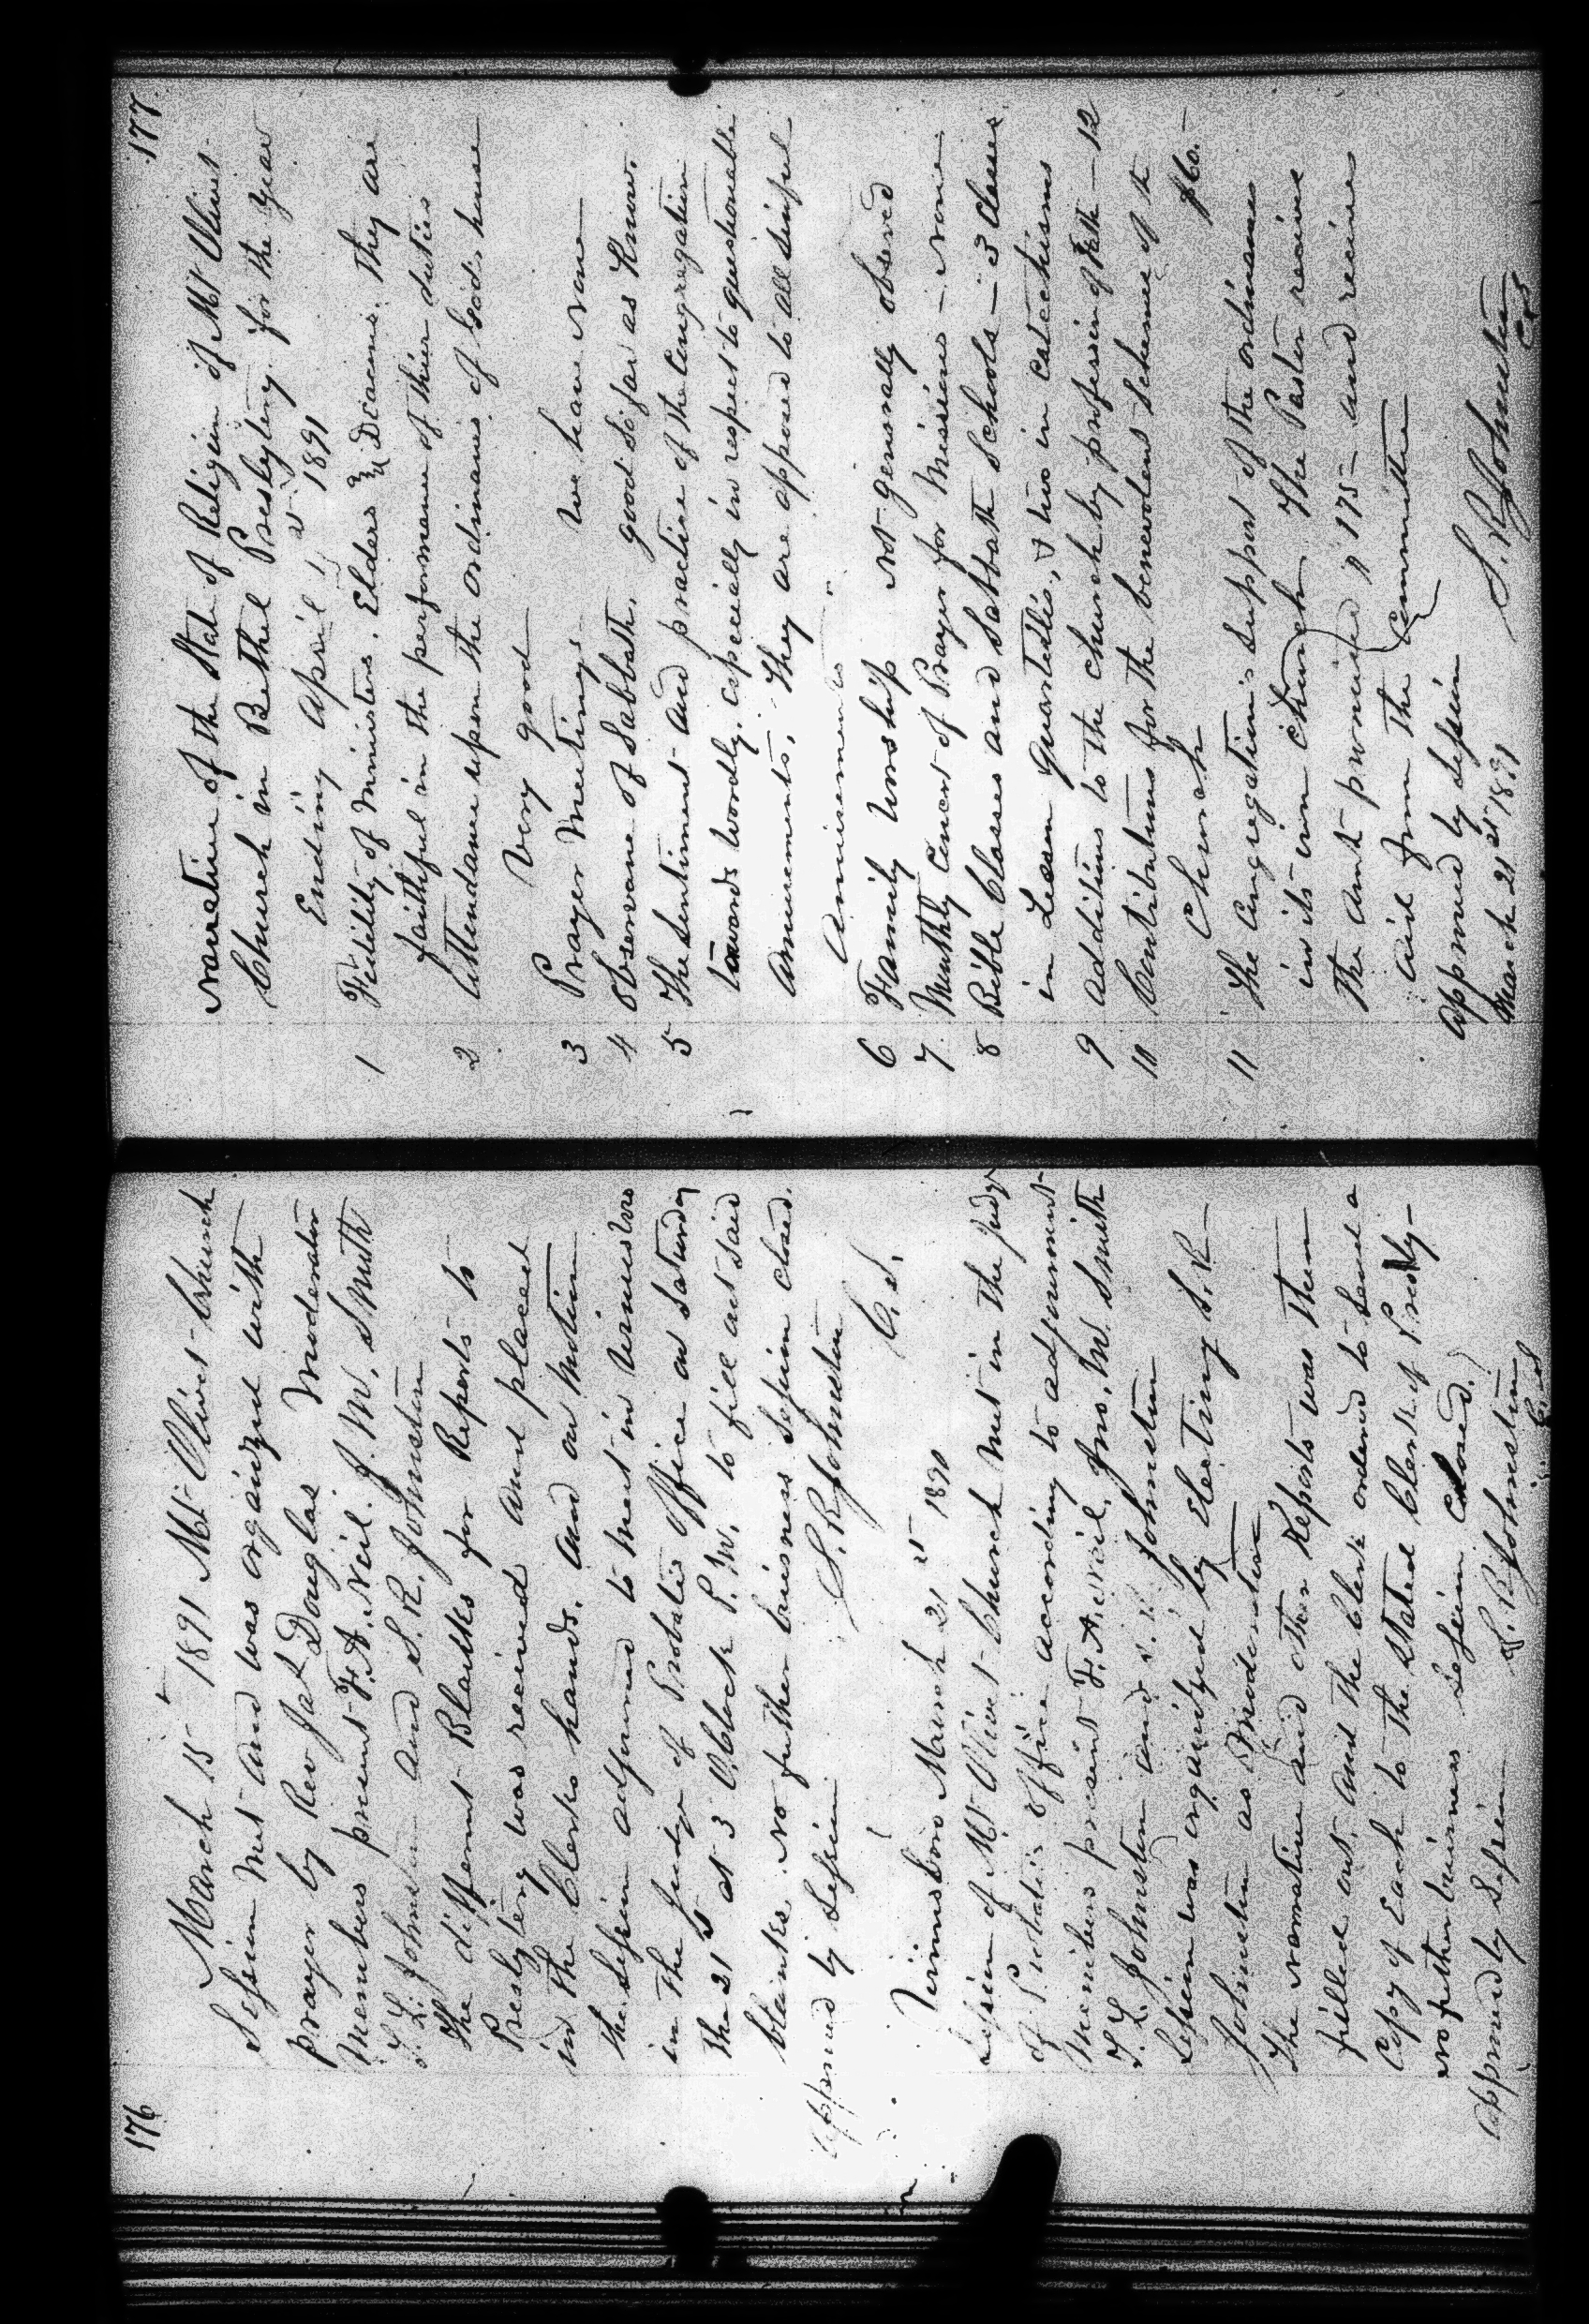 176
March 15 1891 Mt Olivet Church
Session met and was organized with
prayer by Rev Jas Douglas Moderator
Members present F. A. Neil. J. W. Smith
T. L. Johnston and S. R. Johnston
The different Blanks for Reports to
Presbytery was received and placed
in the Clerks hands. and on motion
the Session adjourned to meet in Winnsboro
in the Judge of Probates office on Saturday
the 21st at 3 Oclock P. M. to fill out said
blanks. No further business Session closed.
Approved by Session S. R. Johnston
C. S.
Winnsboro March 21st 1890
Session of Mt Olivet Church met in the Judge
of Probates office according to adjournment
Members present F. A. Neil, Jno. W. Smith
T. L. Johnston and S. R. Johnston
Session was organized by Electing S. R.
Johnston as Moderator
The Narrative and other Reports was then
filled out. and the Clerk ordered to send a
Copy of Each to the Stated Clerk of Presbty-
No further business Session closed.
Approved by Session S. R. Johnston
C. S.
177
Narrative of the State of Religion of Mt Olivet
Church in Bethel Presbytery. for the year
Ending April 1st 1891
1 Fidelity of Ministers. Elders and Deacons. They are
faithful in the performance of their duties
2 Attendance upon the ordinances of God's house
Very good
3 Prayer Meetings We have None
4 Observance of Sabbath. good so far as Know.
5 The Sentiment and practice of the Congregation
towards wordly, especially in respect to questionable
amusements. They are opposed to all sinful
Amusements.
6 Family Worship Not generally observed
7 Monthly Concert of Prayer for Missions - None
8 Bible Classes and Sabbath Schools - 3 Classes
in Lesson Quarterlies, & two in Catechisms
9 Additions to the Church by profession of faith - 12
10 Contributions for the benevolent Schemes of the
Church $60.-
11 The Congregation's support of the ordinances
in its own Church The Pastor receive
The amt promised $175- and receives
aid from the Committee
Approved by Session
March 21st 1891 S. R. Johnston
C. S.